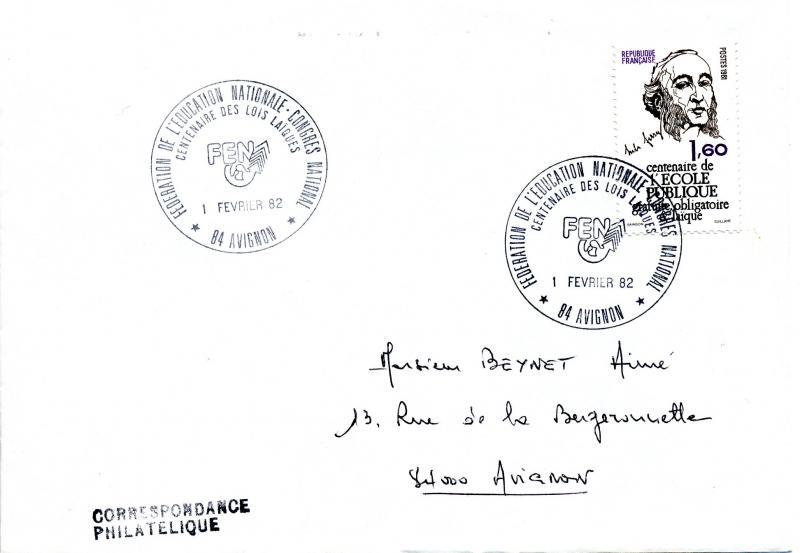 FEDERATION DE L'EDUCATION NATIONALE - CONGRES NATIONAL
CENTENAIRE DES LOIS LAÏQUES
FEN
1 FEVRIER 82
★ 84 AVIGNON ★
REPUBLIQUE
FRANÇAISE
POSTES 1981
1,60
centenaire de
l'ECOLE
PUBLIQUE
gratuite obligatoire
& laïque
FEDERATION DE L'EDUCATION NATIONALE - CONGRES NATIONAL
CENTENAIRE DES LOIS LAÏQUES
FEN
1 FEVRIER 82
★ 84 AVIGNON ★
Monsieur BEYNET Aimé
13, Rue de la Bergeronnette
84000 Avignon
CORRESPONDANCE
PHILATELIQUE